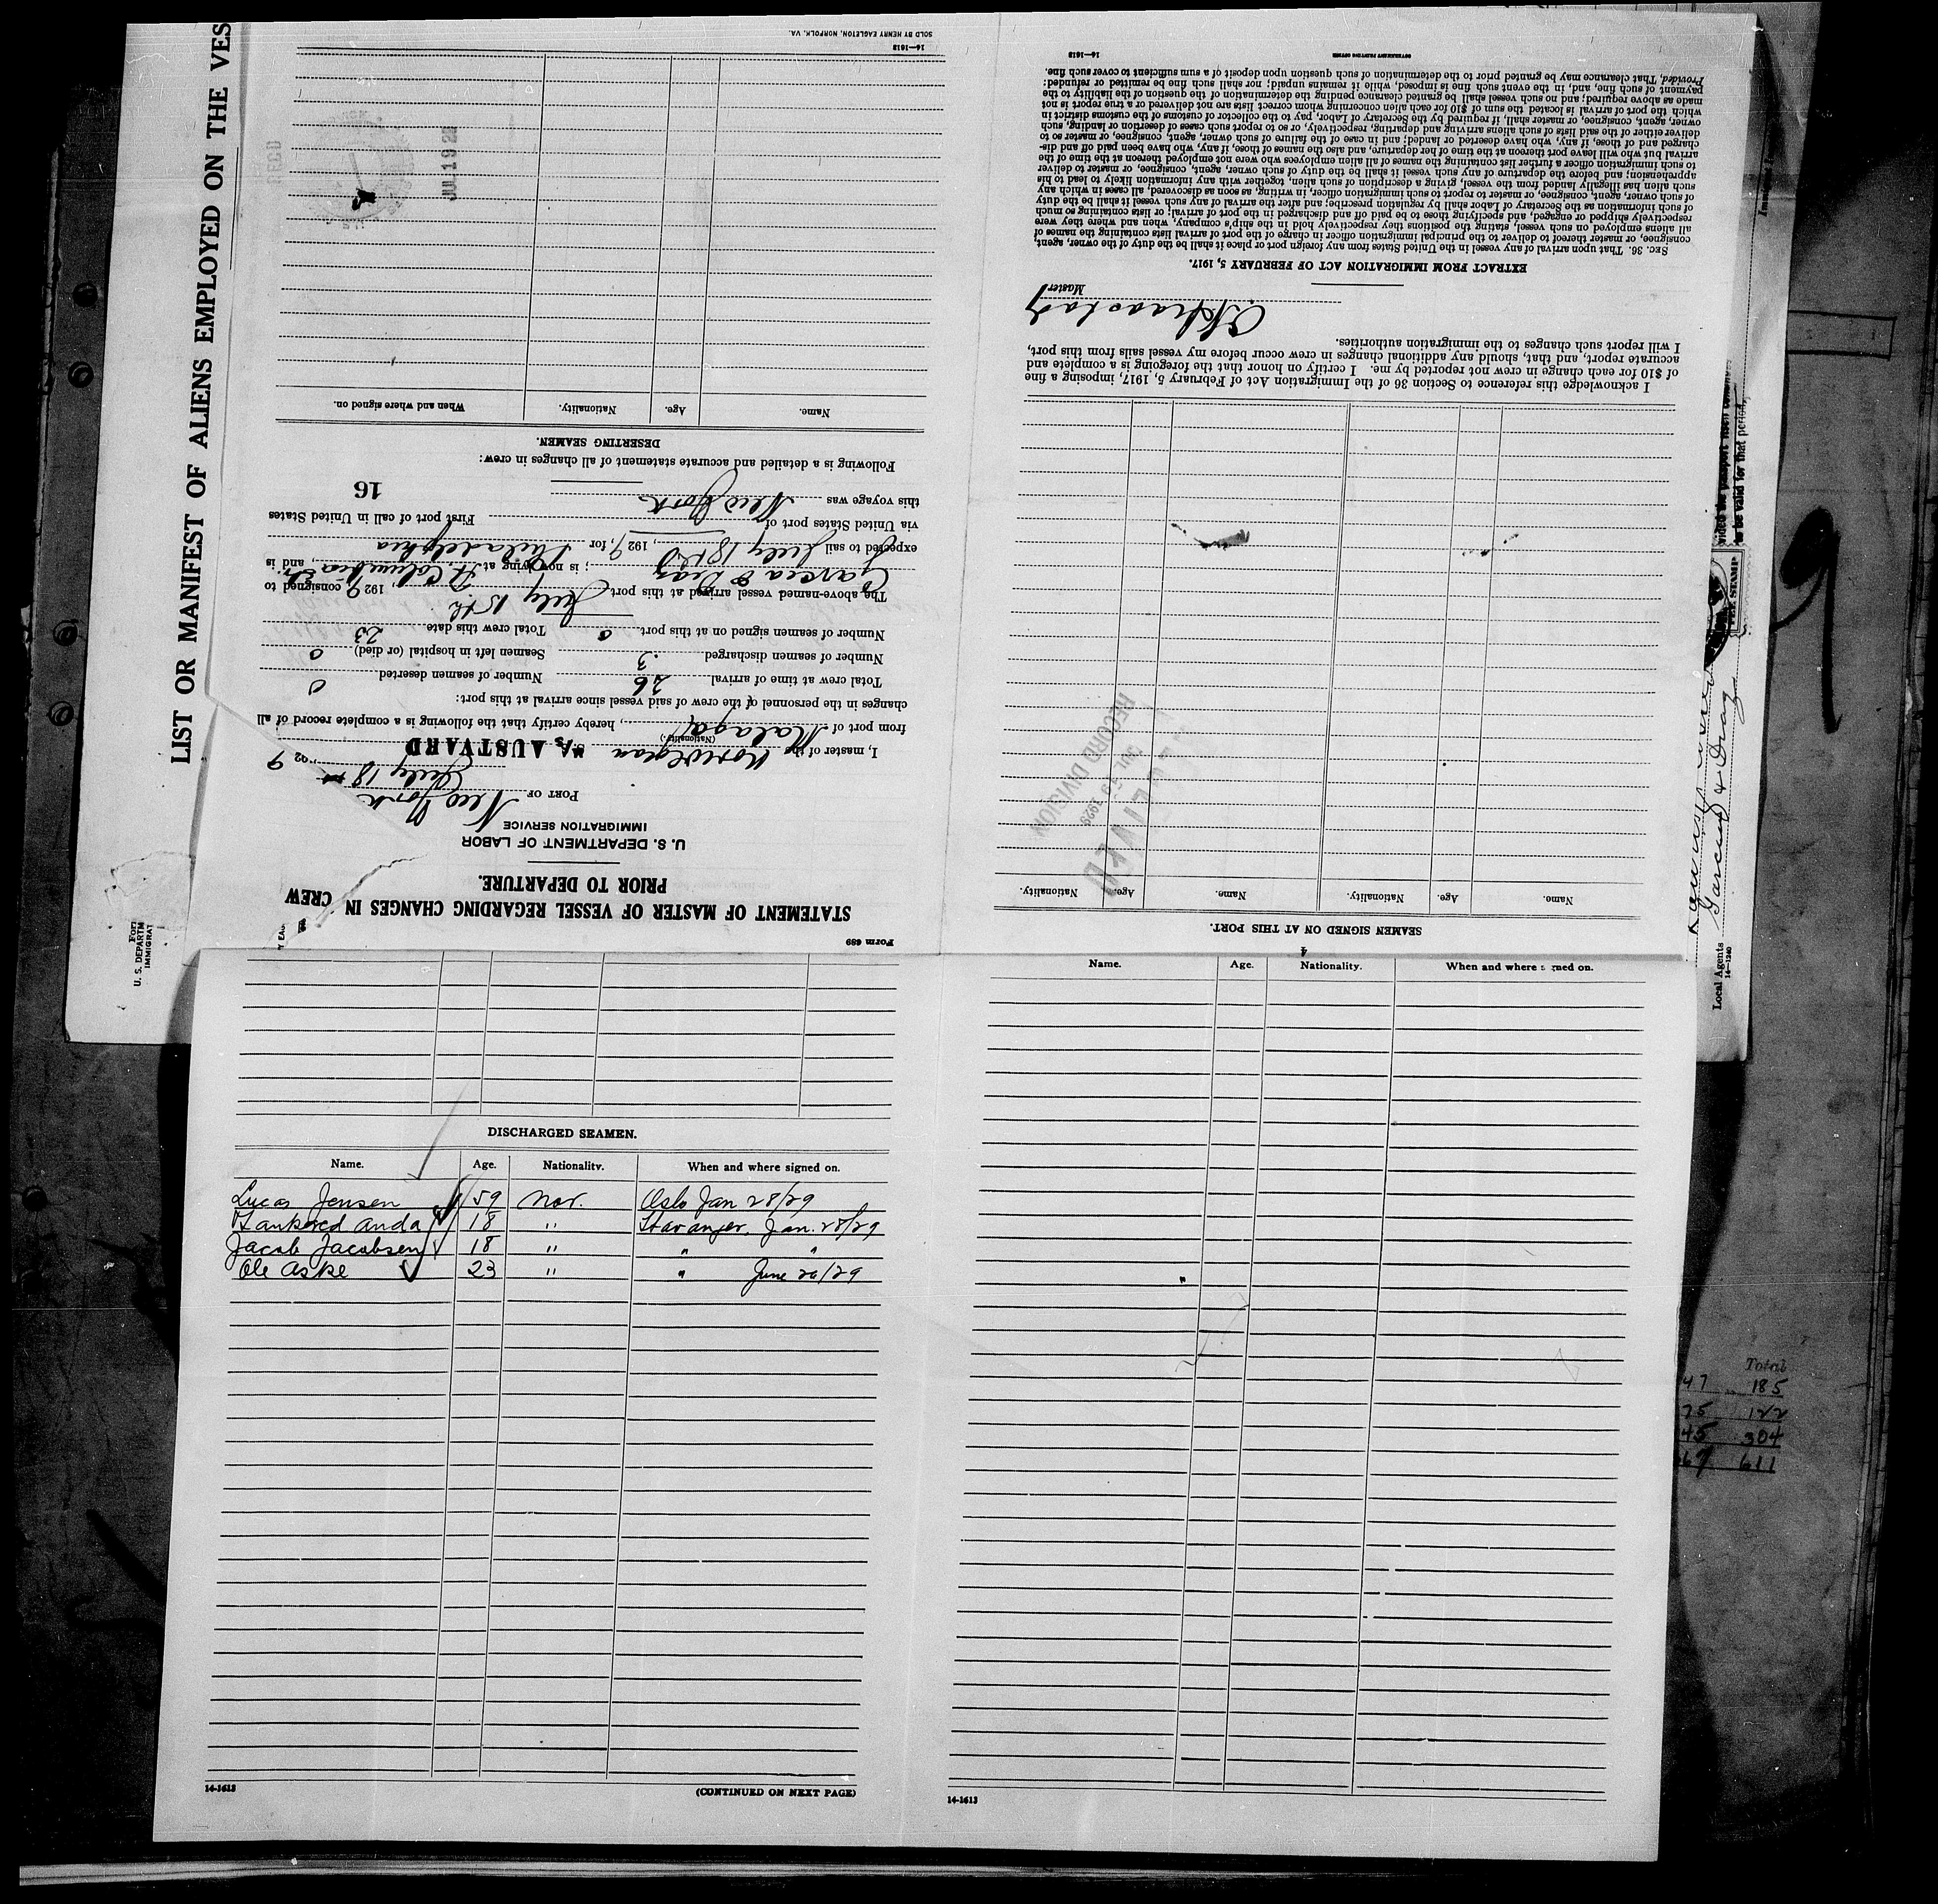 LIST OR MANIFEST OF ALIENS EMPLOYED ON THE VES
U. S. DEPARTM
IMMIGRAT
Form 689
STATEMENT OF MASTER OF VESSEL REGARDING CHANGES IN CREW
PRIOR TO DEPARTURE.
U. S. DEPARTMENT OF LABOR
IMMIGRATION SERVICE
PORT OF New York
July 18th, 1929
I, master of the Norwegian AUSTVARD
(Nationality.)
from port of Malaga, hereby certify that the following is a complete record of all
changes in the personnel of the crew of said vessel since arrival at this port:
Total crew at time of arrival 26 Number of seamen deserted 0
Number of seamen discharged 3 Seamen left in hospital (or died) 0
Number of seamen signed on at this port 0 Total crew this date 23
The above-named vessel arrived at this port July 15th, 1929, consigned to
Garcia & Diaz; is now lying at Ft. Columbia St., and is
expected to sail July 18th, 1929, for Philadelphia
via United States port of First port of call in United States
this voyage was New York
16
Following is a detailed and accurate statement of all changes in crew:
DESERTING SEAMEN.
Name. Age. Nationality. When and where signed on.
14-1613
SOLD BY HENRY EAGLETON, NORFOLK, VA.
4
SEAMEN SIGNED ON AT THIS PORT.
Name. Age. Nationality. Name. Age. Nationality.
RECEIVED
JUL 19 1929
RECORD DIVISION
I acknowledge this reference to Section 36 of the Immigration Act of February 5, 1917, imposing a fine
of $10 for each change in crew not reported by me. I certify on honor that the foregoing is a complete and
accurate report, and that, should any additional changes in crew occur before my vessel sails from this port,
I will report such changes to the immigration authorities.
Master
EXTRACT FROM IMMIGRATION ACT OF FEBRUARY 5, 1917.
SEC. 36. That upon arrival of any vessel in the United States from any foreign port or place it shall be the duty of the owner, agent,
consignee, or master thereof to deliver to the principal immigration officer in charge of the port of arrival lists containing the names of
all aliens employed on such vessel, stating the positions they respectively hold in the ship's company, when and where they were
respectively shipped or engaged, and specifying those to be paid off and discharged in the port of arrival; or lists containing so much
of such information as the Secretary of Labor shall by regulation prescribe; and after the arrival of any such vessel it shall be the duty
of such owner, agent, consignee, or master to report to such immigration officer, in writing, as soon as discovered, all cases in which any
such alien has illegally landed from the vessel, giving a description of such alien, together with any information likely to lead to his
apprehension; and before the departure of any such vessel it shall be the duty of such owner, agent, consignee, or master to deliver
to such immigration officer a further list containing the names of all alien employees who were not employed thereon at the time of the
arrival but who will leave port thereon at the time of her departure, and also the names of those, if any, who have been paid off and dis-
charged and of those, if any, who have deserted or landed; and in case of the failure of such owner, agent, consignee, or master so to
deliver either of the said lists of such aliens arriving and departing, respectively, or so to report such cases of desertion or landing, such
owner, agent, consignee, or master shall, if required by the Secretary of Labor, pay to the collector of customs of the customs district in
which the port of arrival is located the sum of $10 for each alien concerning whom correct lists are not delivered or a true report is not
made as above required; and no such vessel shall be granted clearance pending the determination of the question of the liability to the
payment of such fine, and, in the event such fine is imposed, while it remains unpaid; nor shall such fine be remitted or refunded:
Provided, That clearance may be granted prior to the determination of such question upon deposit of a sum sufficient to cover such fine.
14-1613
GOVERNMENT PRINTING OFFICE
DISCHARGED SEAMEN.
Name. Age. Nationality. When and where signed on.
Lucas Jensen 59 Nor. Oslo Jan 28/29
Tankered Anda 18 " Stavanger. Jan. 28/29
Jacob Jacobsen 18 " " "
Ole Aske 23 " " June 20/29
14-1613
(CONTINUED ON NEXT PAGE)
Name. Age. Nationality. When and where signed on.
14-1613
Local Agents Garcia & Diaz
14-1240
FEE STAMP
to be valid for that period,
9
Total
47 185
75 122
45 304
67 611